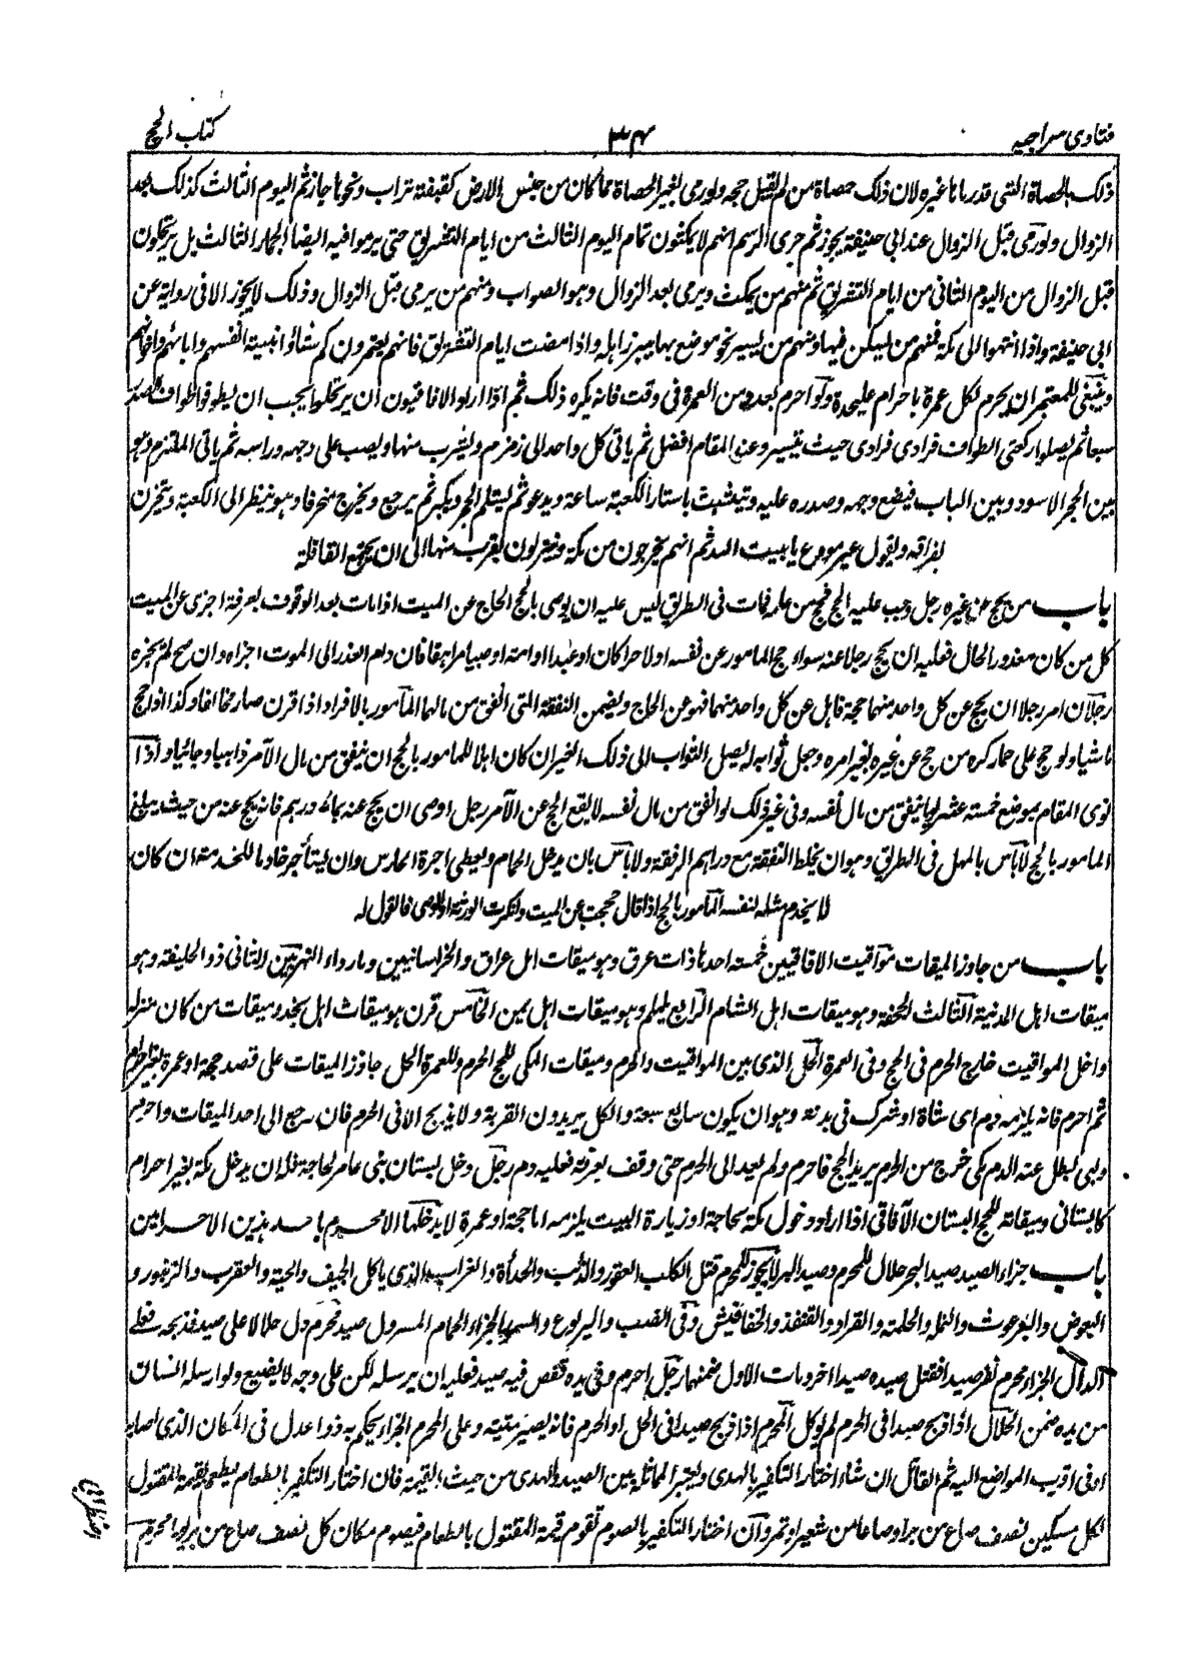 فتاوى سراجيه
٣٤
كتاب الحج
ذلك بالحصاة التى قدر بانا غيره لان ذلك حصاة من لم يقبل حجه ولو رمى بغير الحصاة مما كان من جنس الارض كقبضة تراب ونحوها جاز ثم اليوم الثالث كذلك بعد
الزوال ولو رمى قبل الزوال عند ابى حنيفة يجوز ثم جرى الرسم انهم لا يمكثون تمام اليوم الثالث من ايام التشريق حتى يرموا فيه ايضا الجمار الثالث بل يرتحلون
قبل الزوال من اليوم الثانى من ايام التشريق ثم منهم من يمكث ويرمى بعد الزوال وهو الصواب ومنهم من يرمى قبل الزوال وذلك لا يجوز الا فى رواية عن
ابى حنيفة واذا انتهوا الى مكة فمنهم من يسكن فيها ومنهم من يسير نحو موضع بها يبرز اهله واذا مضت ايام التشريق فانهم يعتمرون كم شاؤا بنية انفسهم وابائهم واخوانهم
وينبغى للمعتمر ان يحرم لكل عمرة باحرام عليحدة ولو احرم بعدد من العمرة فى وقت فانه يكره ذلك ثم اذا ارادوا الافاقيون ان يرتحلوا يجب ان يطوفوا طواف الصدر
سبعا ثم يصلوا ركعتى الطواف فرادى فرادى حيث تيسير وعند المقام افضل ثم ياتى كل واحد الى زمزم وليشرب منها ويصب على وجهه وراسه ثم ياتى الملتزم وهو
بين الحجر الاسود وبين الباب فيضع وجهه وصدره عليه ويتشبث باستار الكعبة ساعة ويدعو ثم يستلم الحجر ويكبر ثم يرجع ويخرج منحرفا وهو ينظر الى الكعبة ويحزن
بفراقه ويقول غير مودع يا بيت الله ثم انهم يخرجون من مكة وينزلون بقرب منها الى ان يجتمع القافلة
باب من يحج عن غيره رجل وجب عليه الحج فحج من عامه فمات فى الطريق ليس عليه ان يوصى بالحج الحاج عن الميت اذا مات بعد الوقوف بعرفة اجزى عن الميت
كل من كان معذور الحال فعليه ان يحج رجلا عنه سواء حج المامور عن نفسه اولا حرا كان او عبدا او امة او صبيا مراهقا فان دام العذر الى الموت اجزاه وان صح لم يجزه
رجلان امر رجلا ان يحج عن كل واحد منهما حجة فاهل عن كل واحد منهما فهو عن الحاج ويضمن النفقة التى انفق من مالهما المامور بالافراد اذا قرن صار مخالفا وكذا اذا حج
ماشيا ولو حج على حمار كره من حج عن غيره بغير امره وجعل ثوابه له يصل الثواب الى ذلك الغير ان كان اهلا للمامور بالحج ان ينفق من مال الآمر ذاهبا وجائيا واذا
نوى المقام بموضع خمسة عشر يوما ينفق من مال نفسه وفى غير ذلك لو انفق من مال نفسه لا يقع الحج عن الآمر رجل اوصى ان يحج عنه بمائة درهم فانه يحج عنه من حيث يبلغ
المامور بالحج لا باس بالمهل فى الطريق وهو ان يخلط النفقة مع دراهم الرفقة ولا باس بان يدخل الحمام ويعطى اجرة الحارس وان يستأجر خادما للخدمة ان كان
لا يخدم مثله لنفسه المامور بالحج اذا قال حججت عن الميت وانكرت الورثة او الوصى فالقول له
باب من جاوز الميقات مواقيت الافاقيين خمسة احدها ذات عرق وهو ميقات اهل عراق والخراسانيين وما وراء النهريين الثانى ذو الحليفة وهو
ميقات اهل المدينة الثالث الجحفة وهو ميقات اهل الشام الرابع يلملم وهو ميقات اهل يمن الخامس قرن هو ميقات اهل نجد وميقات من كان منزله
داخل المواقيت خارج الحرم فى الحج وفى العمرة الحل الذى بين المواقيت والحرم وميقات المكى للحج الحرم وللعمرة الحل جاوز الميقات على قصد حجة او عمرة بغير احرام
ثم احرم فانه يلزمه دم اى شاة او شرك فى بدنة وهو ان يكون سابع سبعة والكل يريدون القربة ولا يذبح الا فى الحرم فان رجع الى احد الميقات واحرم
ولبى بطل عنه الدم مكى خرج من الحرم يريد الحج فاحرم ولم يعد الى الحرم حتى وقف بعرفة فعليه دم رجل دخل بستان بنى عامر لحاجة فله ان يدخل مكة بغير احرام
كالبستانى وميقاته للحج البستان الآفاقى اذا اراد دخول مكة لحاجة او زيارة البيت يلزمه اما حجة او عمرة لا يدخلها الا محرم باحد هذين الاحرامين
باب جزاء الصيد صيد البحر حلال للمحرم وصيد البر لا يجوز للمحرم قتل الكلب العقور والذئب والحدأة والغراب الذى ياكل الجيف والحية والعقرب والزنبور و
البعوض والبرغوث والنملة والحلمة والقراد والقنفذ والخنافيش وفى الضب واليربوع والسمور الجزاء الحمام المسرول صيد محرم دل حلالا على صيد فذبحه فعلى
الدال الجزاء محرم نفر صيدا فقتل صيده صيدا اخر ومات الاول ضمنهما رجل احرم وفى يده قفص فيه صيد فعليه ان يرسله لكن على وجه لا يضيع ولو ارسله انسان
من يده ضمن الحلال اذا ذبح صيدا فى الحرم لم يوكل المحرم اذا ذبح صيدا فى الحل او الحرم فانه يصير ميتة وعلى المحرم الجزاء يحكم به ذوا عدل فى المكان الذى اصابه
او فى اقرب المواضع اليه ثم القاتل ان شاء اختار التكفير بالهدى ويعتبر المماثلة بين الصيد والهدى من حيث القيمة فان اختار التكفير بالطعام يطعم لقيمة المقتول
لكل مسكين نصف صاع من بر او صاعا من شعير او تمر وان اختار التكفير بالصوم تقوم قيمة المقتول بالطعام فيصوم مكان كل نصف صاع من بر يوما محرم